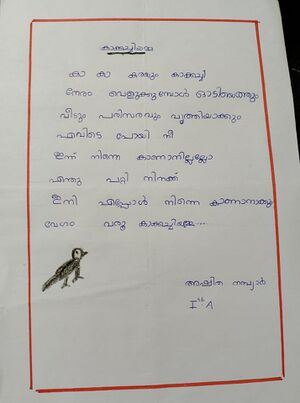 കാക്കച്ചിയമ്മ
കാ കാ കരയും കാക്കച്ചി
നേരം വെളുക്കുമ്പോൾ ഓടിയെത്തും
വീടും പരിസരവും വൃത്തിയാക്കും
എവിടെ പോയി നീ
ഇന്ന് നിന്നെ കാണാനില്ലല്ലോ
എന്തു പറ്റി നിനക്ക്
ഇനി എപ്പോൾ നിന്നെ കാണാനാകും
വേഗം വരൂ കാക്കച്ചിയമ്മേ....
അഷിത നമ്പ്യാർ
I st A